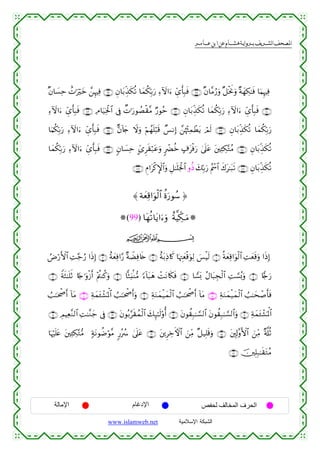 المصحف الشريف برواية هشام عن ابن عامر
فِيهِمَا فَٰكِهَةٌ وَنَخۡلٌ وَرُمَّانٌ ۝ فَبِأَيِّ ءَالَآءِ رَبِّكُمَا تُكَذِّبَانِ ۝ فِيهِنَّ خَيۡرَٰتٌ حِسَانٌ
۝ فَبِأَيِّ ءَالَآءِ رَبِّكُمَا تُكَذِّبَانِ ۝ حُورٌ مَّقۡصُورَٰتٌ فِي ٱلۡخِيَامِ ۝ فَبِأَيِّ ءَالَآءِ
رَبِّكُمَا تُكَذِّبَانِ ۝ لَمۡ يَطۡمِثۡهُنَّ إِنسٌ قَبۡلَهُمۡ وَلَا جَآنٌّ ۝ فَبِأَيِّ ءَالَآءِ رَبِّكُمَا
تُكَذِّبَانِ ۝ مُتَّكِـِٔينَ عَلَىٰ رَفۡرَفٍ خُضۡرٍ وَعَبۡقَرِيٍّ حِسَانٍ ۝ فَبِأَيِّ ءَالَآءِ رَبِّكُمَا
تُكَذِّبَانِ ۝ تَبَٰرَكَ ٱسۡمُ رَبِّكَ ذُو ٱلۡجَلَٰلِ وَٱلۡإِكۡرَامِ ۝
﴿ سُورَةُ ٱلۡوَاقِعَةِ ﴾
مَكِّيَّةٌ وَءَايَاتُهَا (99)
بِسۡمِ ٱللَّهِ ٱلرَّحۡمَٰنِ ٱلرَّحِيمِ
إِذَا وَقَعَتِ ٱلۡوَاقِعَةُ ۝ لَيۡسَ لِوَقۡعَتِهَا كَاذِبَةٌ ۝ خَافِضَةٌ رَّافِعَةٌ ۝ إِذَا رُجَّتِ ٱلۡأَرۡضُ
رَجّٗا ۝ وَبُسَّتِ ٱلۡجِبَالُ بَسّٗا ۝ فَكَانَتۡ هَبَآءٗ مُّنۢبَثّٗا ۝ وَكُنتُمۡ أَزۡوَٰجٗا ثَلَٰثَةٗ ۝
فَأَصۡحَٰبُ ٱلۡمَيۡمَنَةِ مَآ أَصۡحَٰبُ ٱلۡمَيۡمَنَةِ ۝ وَأَصۡحَٰبُ ٱلۡمَشۡـَٔمَةِ مَآ أَصۡحَٰبُ
ٱلۡمَشۡـَٔمَةِ ۝ وَٱلسَّٰبِقُونَ ٱلسَّٰبِقُونَ ۝ أُوْلَٰٓئِكَ ٱلۡمُقَرَّبُونَ ۝ فِي جَنَّٰتِ ٱلنَّعِيمِ ۝
ثُلَّةٌ مِّنَ ٱلۡأَوَّلِينَ ۝ وَقَلِيلٌ مِّنَ ٱلۡأٓخِرِينَ ۝ عَلَىٰ سُرُرٍ مَّوۡضُونَةٍ ۝ مُّتَّكِـِٔينَ عَلَيۡهَا
مُتَقَٰبِلِينَ ۝
الحرف المخالف لحفص الإدغام الإمالة
الشبكة الإسلامية www.islamweb.net